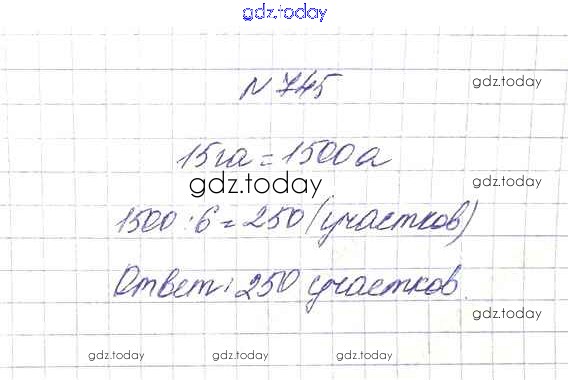 gdz.today
№ 745
gdz.today
15 га = 1500 а
gdz.today
gdz.today
1500 : 6 = 250 (участков)
gdz.today
Ответ: 250 участков.
gdz.today
gdz.today
gdz.today